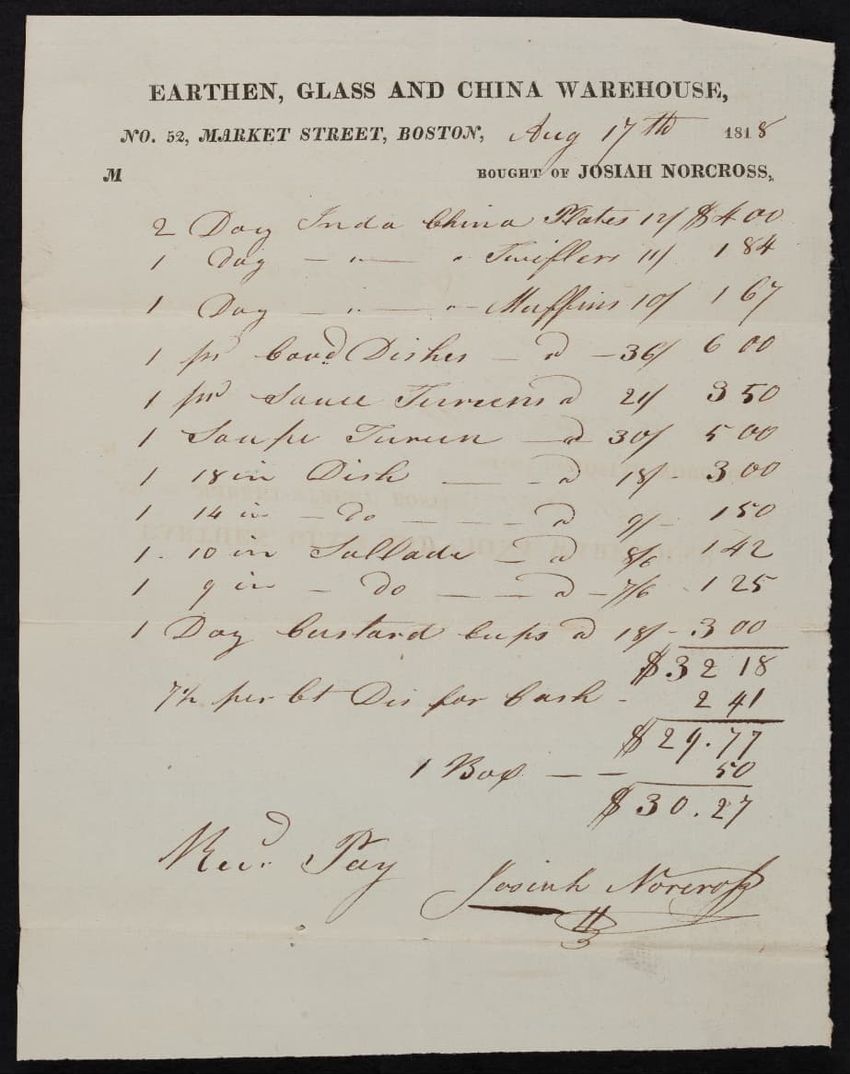 EARTHEN, GLASS AND CHINA WAREHOUSE,
NO. 52, MARKET STREET, BOSTON, Aug 17th 1818
M BOUGHT OF JOSIAH NORCROSS,
2 Doz Inda China Plates 12/ $4 00
1 doz — " — " Twiflers 11/ 1 84
1 Doz — " — " Muffins 10/ 1 67
1 pr Cov'd Dishes — a — 36/ 6 00
1 pr Sauce Tureens a 21/ 3 50
1 Soupe Tureen — a 30/ 5 00
1 18 in Dish — - a 18/ - 3 00
1 14 in - do — - - a 9/ - 1 50
1 - 10 in Sallade — a 8/6 1 42
1 9 in - do — — a — 7/6 - 1 25
1 Doz Custard Cups a 18/ - 3 00
$32 18
7½ per Ct Dis for Cash - 2 41
$29.77
1 Box — — 50
$30.27
Recd. Pay
Josiah Norcross